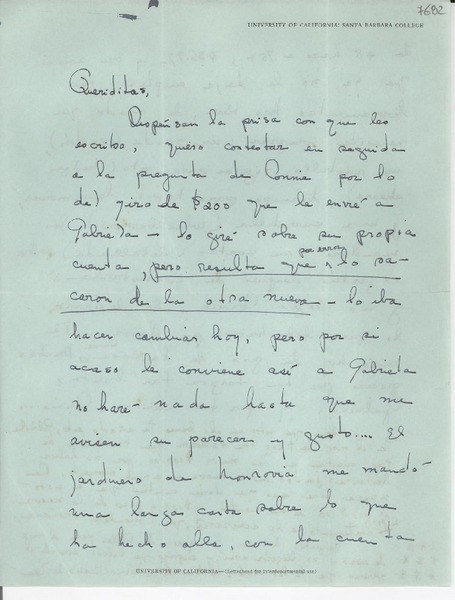 7682
UNIVERSITY OF CALIFORNIA: SANTA BARBARA COLLEGE
Queriditas,
Dispensan la prisa con que les
escribo, quero contestar en seguida
a la pregunta de Connie por lo
del giro de $200 que le envié a
Gabriela — lo giré sobre su propia
cuenta, pero resulta que por error lo sa-
caron de la otra nueva — lo iba
hacer cambiar hoy, pero por si
acaso le conviene así a Gabriela
no haré nada hasta que me
avisen su parecer y gusto.... El
jardinero de Monrovia me mandó
una larga carta sobre lo que
ha hecho alla, con la cuenta
UNIVERSITY OF CALIFORNIA—(Letterhead for interdepartmental use)